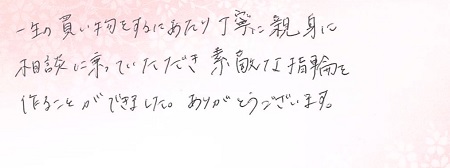 一生の買い物をするにあたり丁寧に親身に
相談に乗っていただき素敵な指輪を
作ることができました。ありがとうございます。